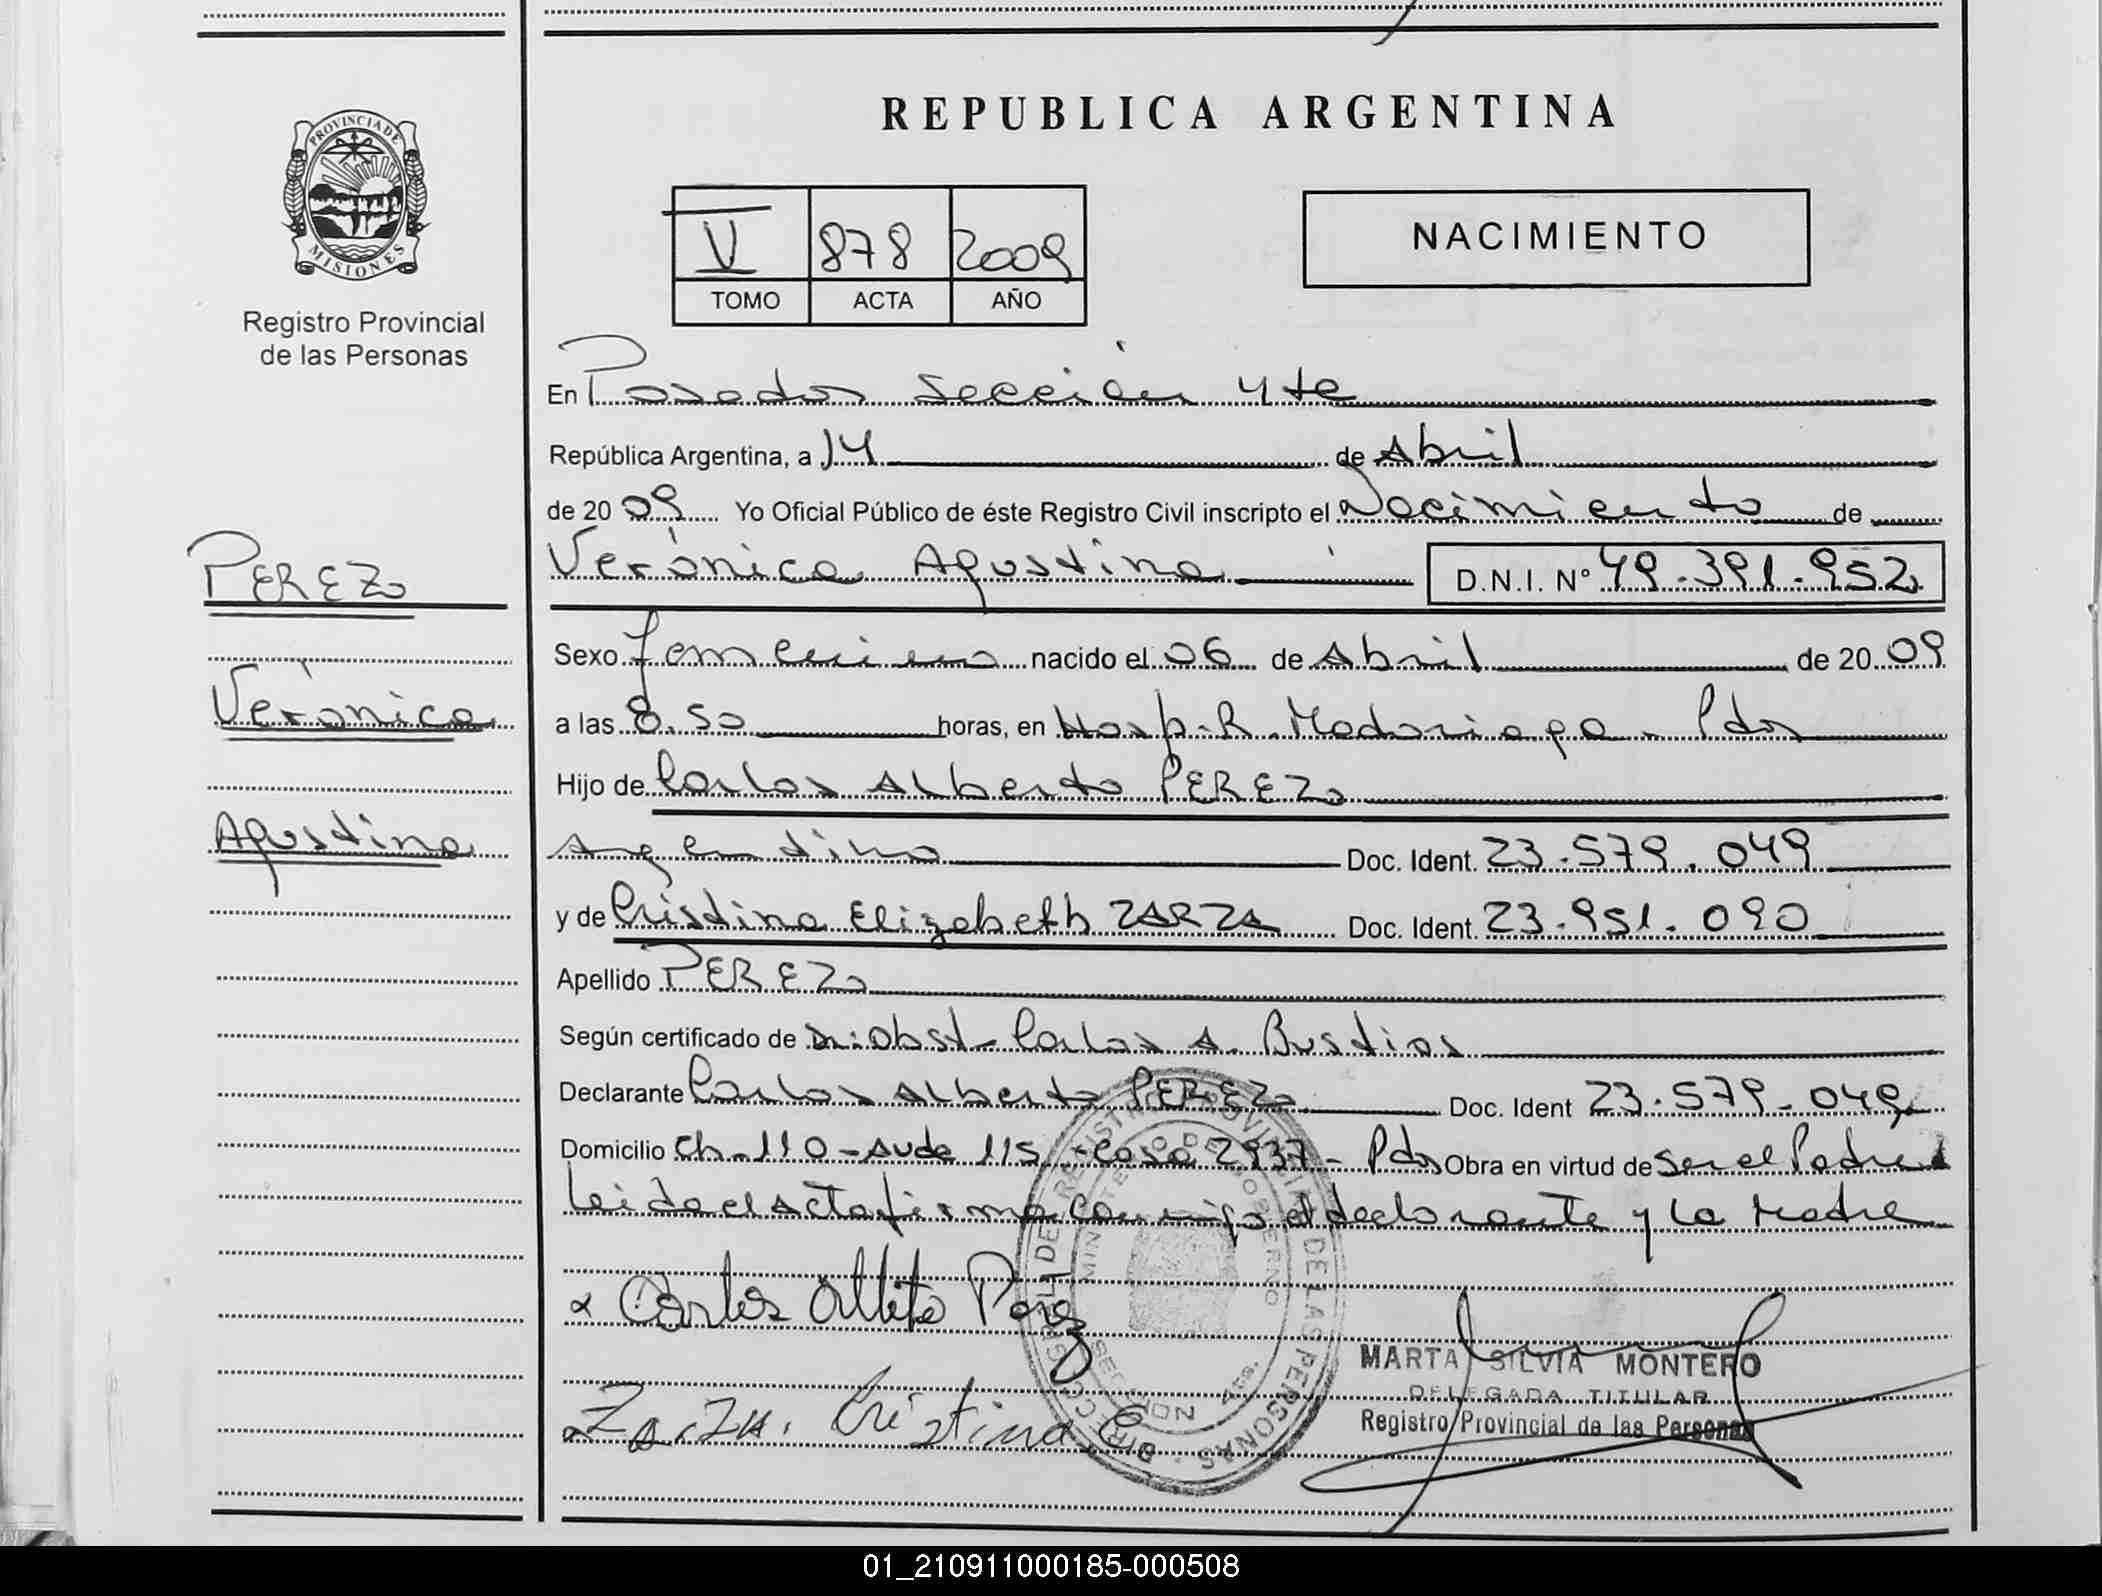 PROVINCIA DE
MISIONES
Registro Provincial
de las Personas
PEREZ
Verónica
Agustina
REPUBLICA ARGENTINA
V 878 2009
TOMO ACTA AÑO
NACIMIENTO
En Posadas Sección 4ta
República Argentina, a 14 de Abril
de 2009 Yo Oficial Público de éste Registro Civil inscripto el Nacimiento de
Verónica Agustina D.N.I. Nº 49.391.952
Sexo femenino nacido el 06 de Abril de 2009
a las 8.50 horas, en Hosp. R. Madariaga - Pdas
Hijo de Carlos Alberto PEREZ
Argentino Doc. Ident. 23.579.049
y de Cristina Elizabeth ZARZA Doc. Ident. 23.951.090
Apellido PEREZ
Según certificado de Dr. Obst. Carlos A. Bustios
Declarante Carlos Alberto PEREZ Doc. Ident 23.579.049
Domicilio Ch. 110 - Avda 115 - Casa 2937 - Pdas Obra en virtud de Ser el Padre
Leida el Acta firma conmigo el declarante y la Madre
x Carlos Alberto Perez
x Zarza. Cristina E.
DIRECCION GRAL DE REGISTRO PROVINCIAL DE LAS PERSONAS
MINISTERIO DE GOBIERNO
SECCION 4ta.
MARTA SILVIA MONTERO
DELEGADA TITULAR
Registro Provincial de las Personas
01_210911000185-000508